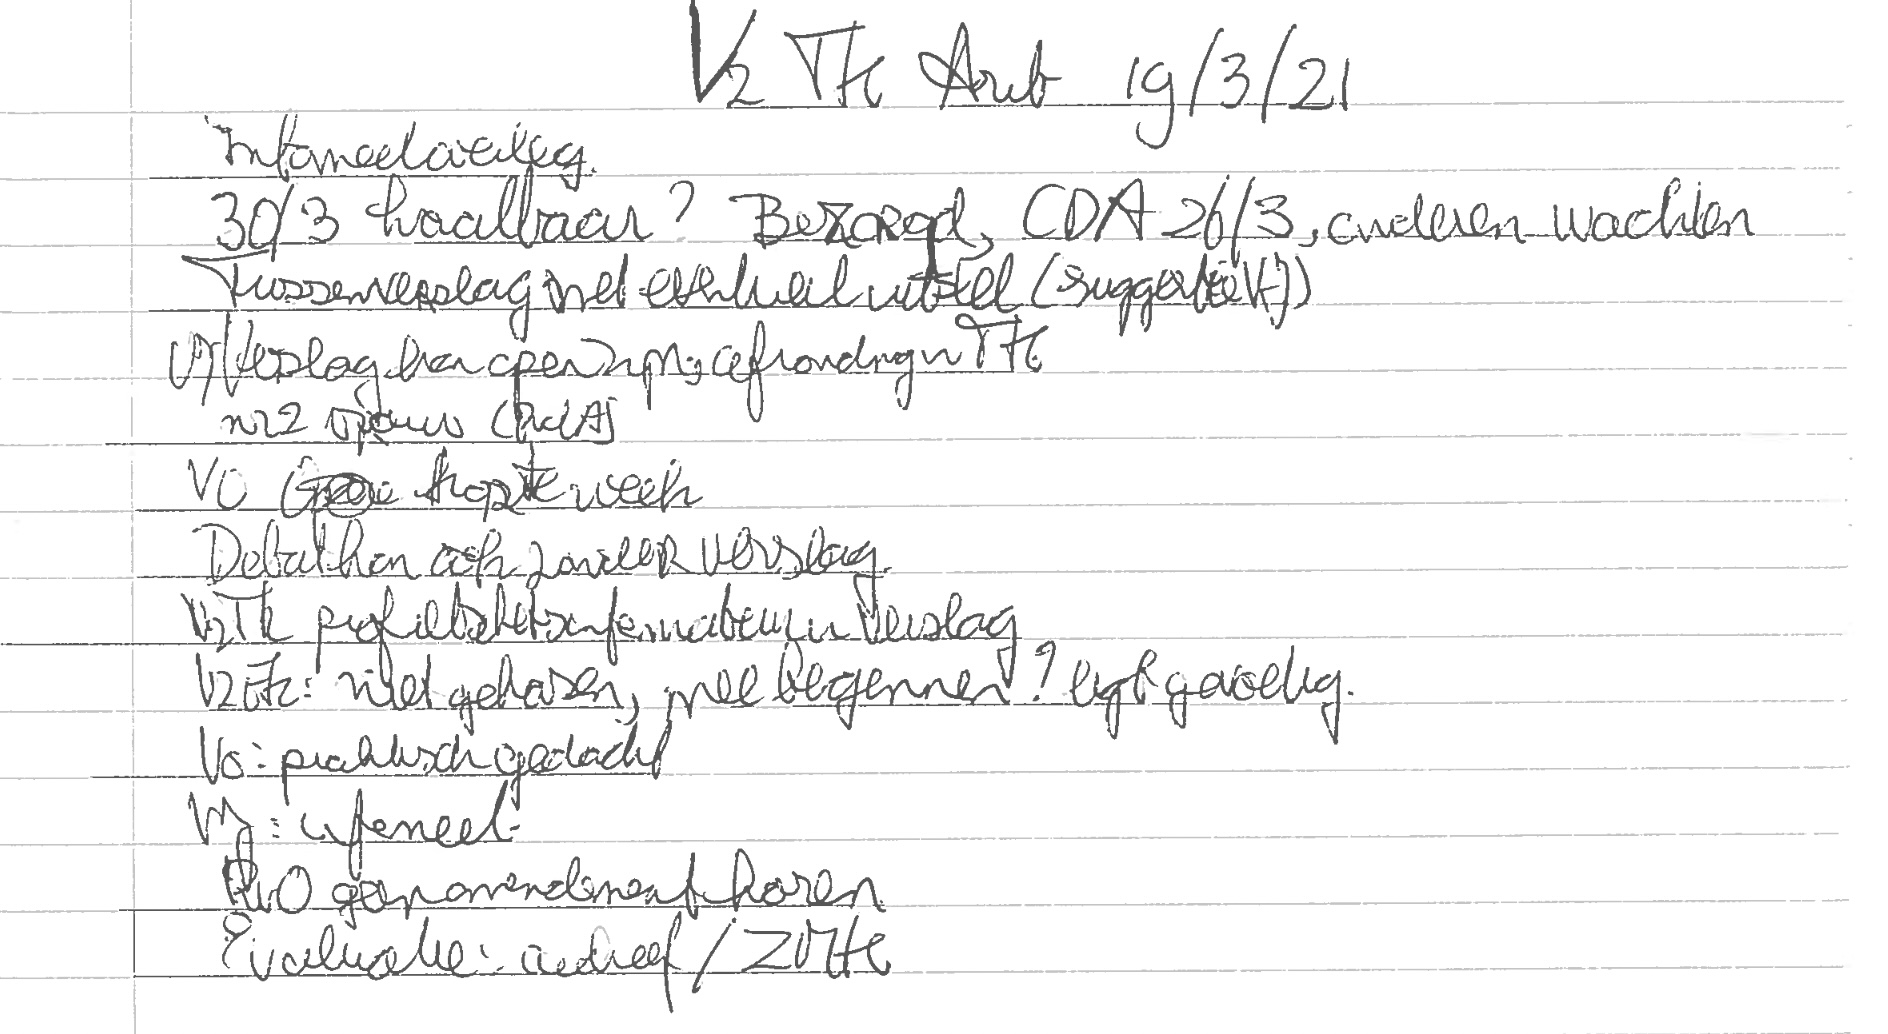 V2 TK Arib 19/3/21
Informeel overleg.
30/3 haalbaar? Bezorgd, CDA 26/3, anderen wachten
Tussenverslag met eventueel uitstel (suggestie Vz)
Verslag kan open zijn; afronding in TK
nr 2 opnieuw (PvdA)
V0 Grote kopte week
Debat kan ook zonder verslag.
V2TK profielschets informateur in verslag
V2TK: niet gekozen, mee beginnen? ligt gevoelig.
V0: praktisch gedacht
: informeel
RvO geen amendement horen
Evaluatie: actief / TK